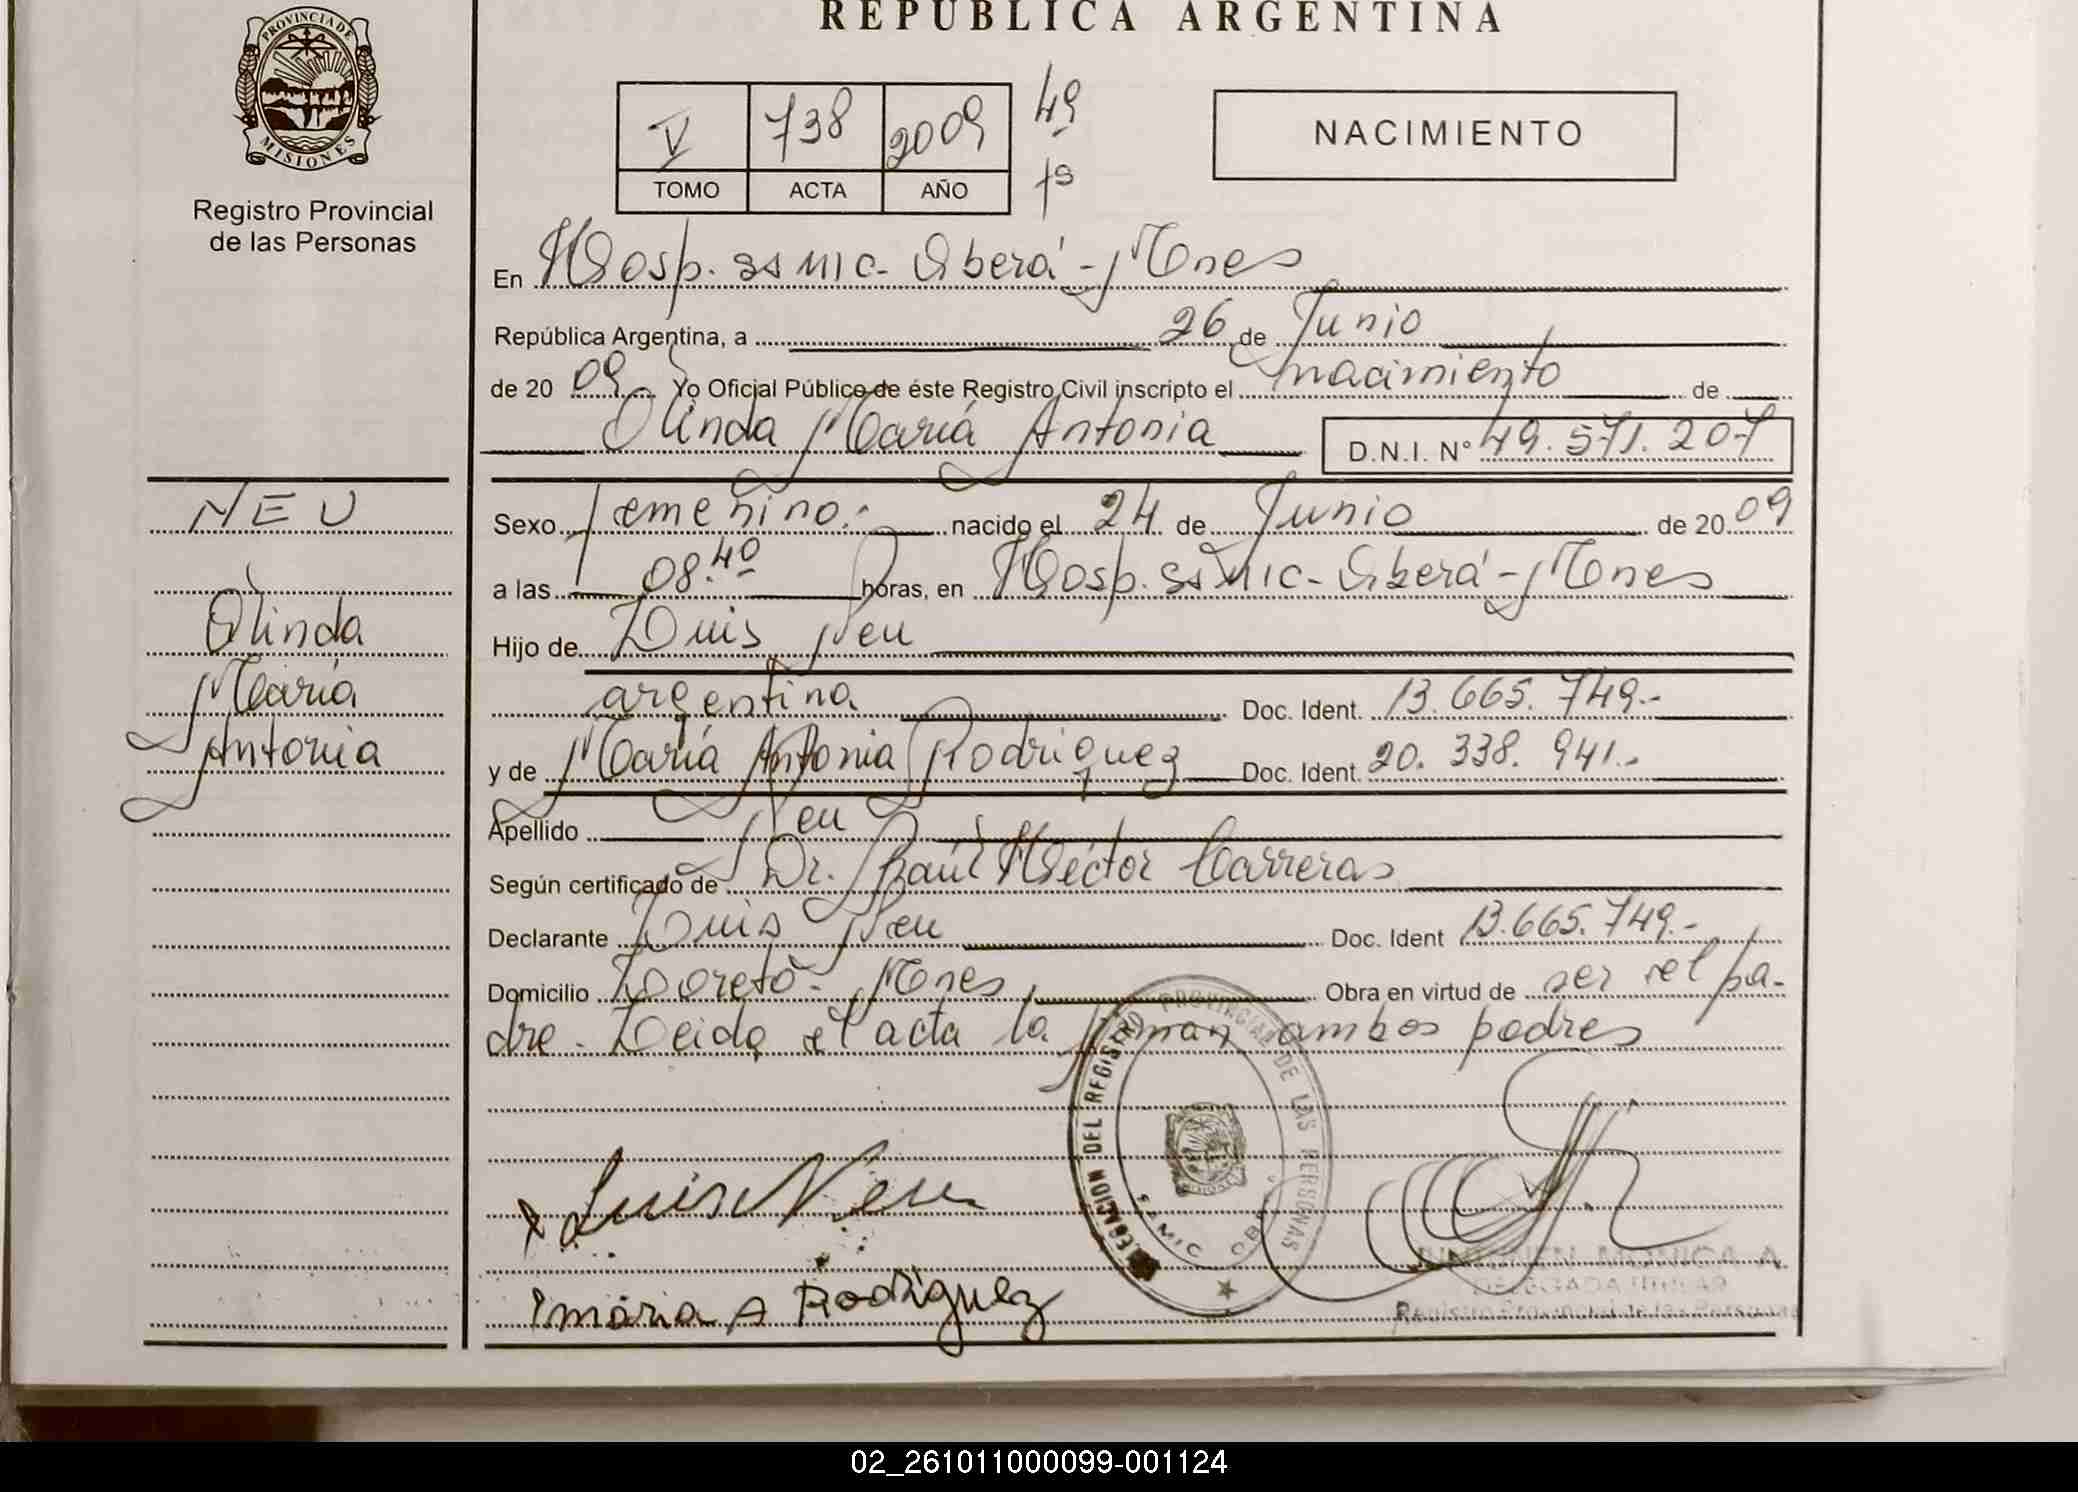 REPUBLICA ARGENTINA
PROVINCIA DE
MISIONES
Registro Provincial
de las Personas
V 738 2009 49
TOMO ACTA AÑO
NACIMIENTO
En Hosp. SAMIC - Oberá - Mnes
República Argentina, a 26 de Junio
de 20 09 Yo Oficial Público de éste Registro Civil inscripto el nacimiento de
Olinda María Antonia D.N.I. Nº 49.571.207
NEU
Olinda
María
Antonia
Sexo femenino.- nacido el 24 de Junio de 20 09
a las 08.40 horas, en Hosp. SAMIC - Oberá - Mnes
Hijo de Luis Neu
argentina Doc. Ident. 13.665.749.-
y de María Antonia Rodriguez Doc. Ident. 20.338.941.-
Apellido Neu
Según certificado de Dr. Raúl Héctor Carreras
Declarante Luis Neu Doc. Ident 13.665.749.-
Domicilio Loreto - Mnes Obra en virtud de ser el pa-
dre. Leida el acta la firman ambos padres
DELEGACION DEL REGISTRO PROVINCIAL DE LAS PERSONAS
SAMIC
Luis Neu
maria A Rodriguez
MONICA A
DELEGADA TITULAR
Registro Provincial de las Personas
02_261011000099-001124